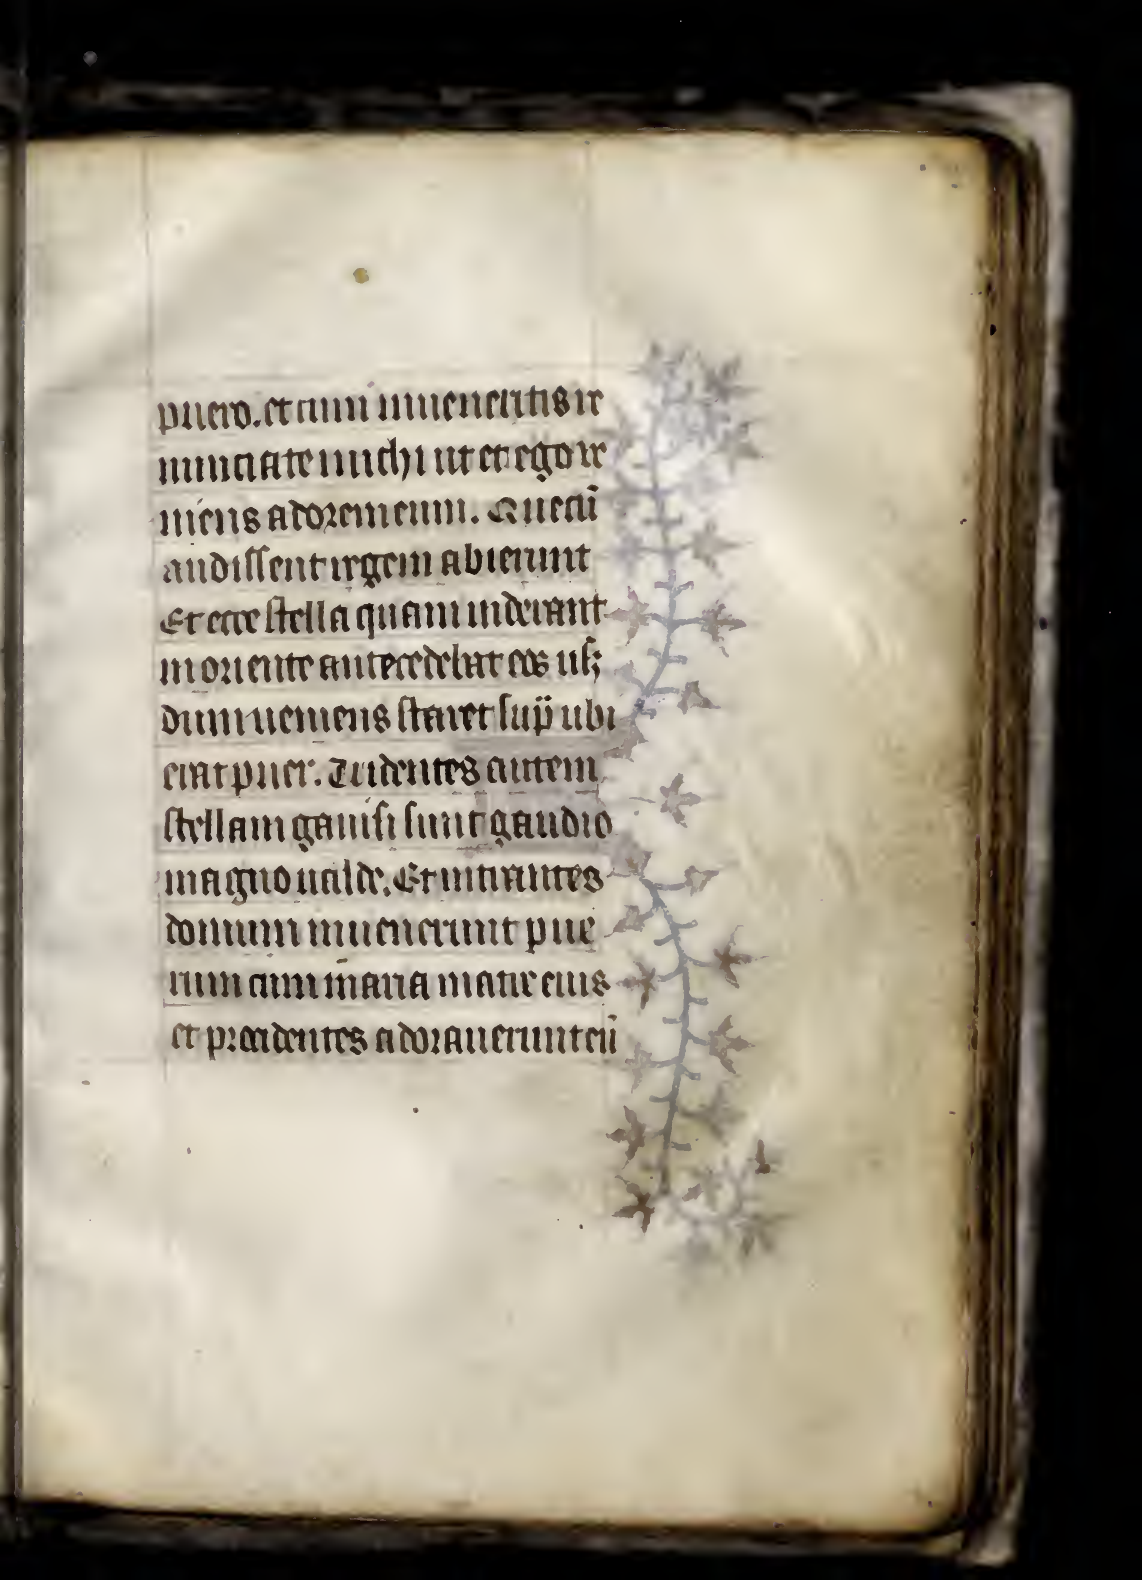 puero. et cum inueneritis re
nunciate michi ut et ego ue
niens adorem eum. Qui cū
audissent regem abierunt
Et ecce stella quam uiderant
in oriente antecedebat eos usꝫ
dum ueniens staret sup̄ ubi
erat puer. Uidentes autem
stellam gauisi sunt gaudio
magno ualde. Et intrantes
domum inuenerunt pue
rum cum maria matre eius
et procidentes adorauerunt eū